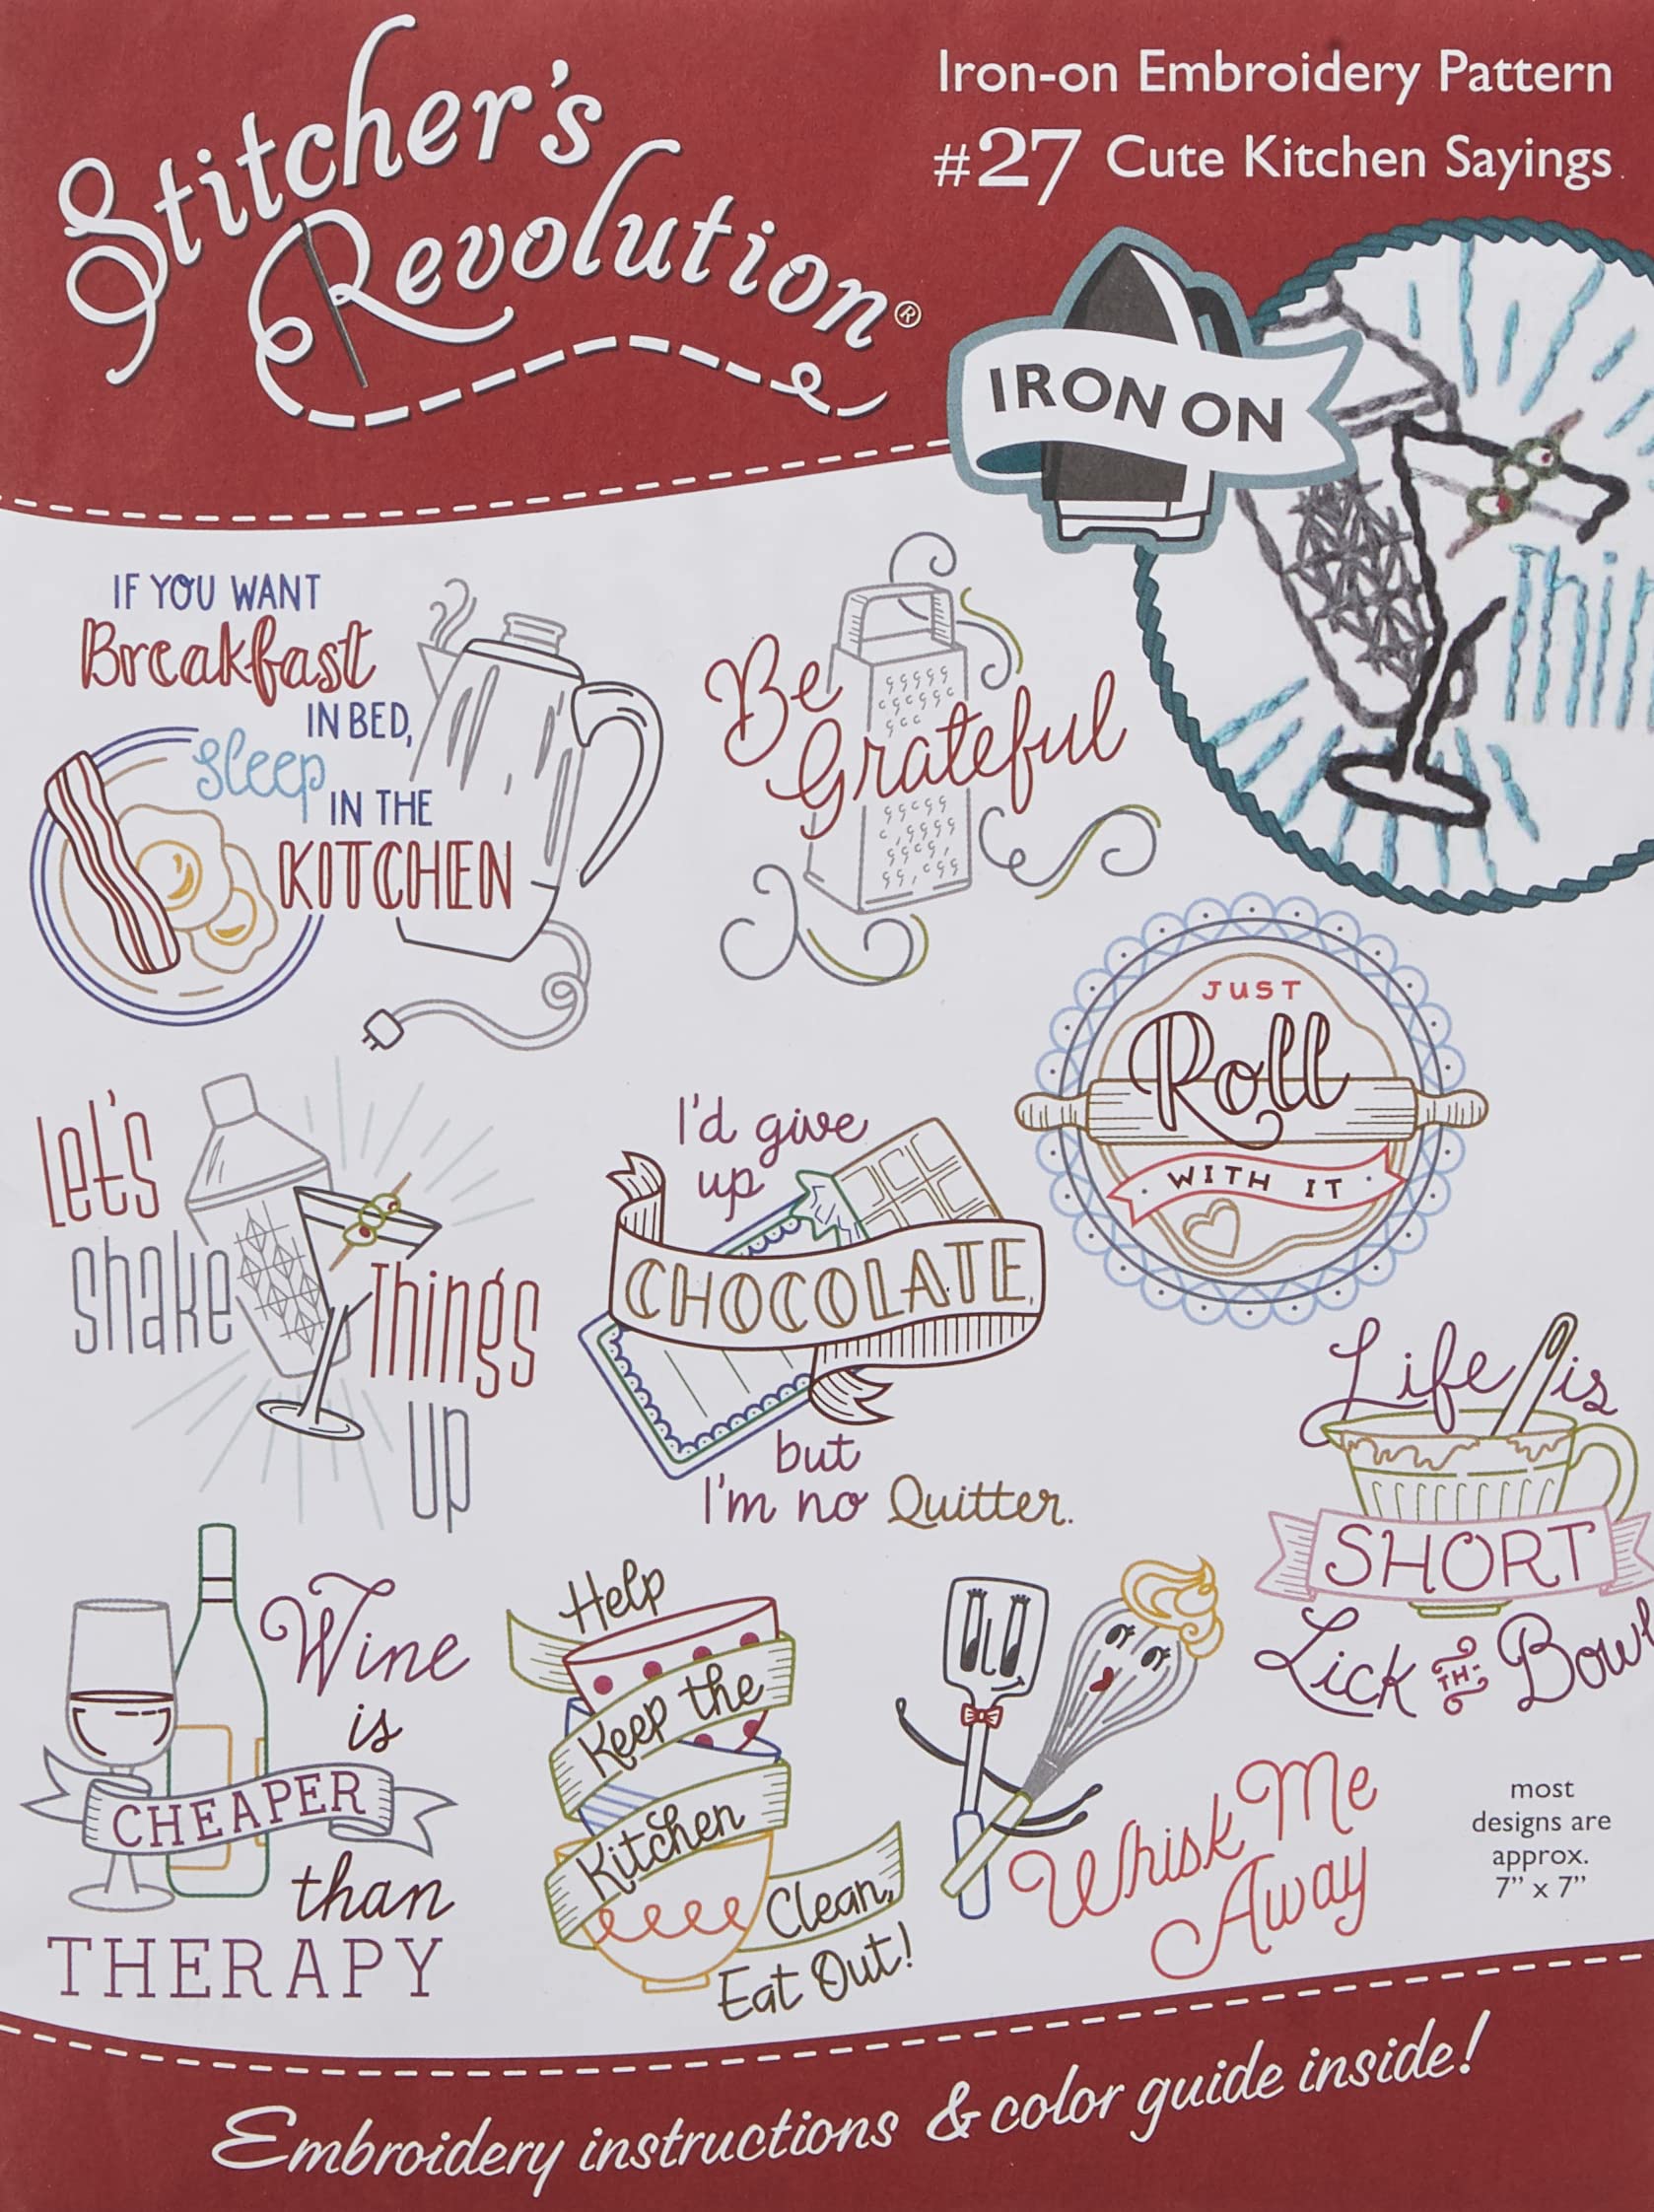 Stitcher's
Revolution®
Iron-on Embroidery Pattern
#27 Cute Kitchen Sayings
IRON ON
IF YOU WANT
Breakfast
IN BED,
sleep
IN THE
KITCHEN
Be
Grateful
JUST
Roll
WITH IT
Let's
shake
Things
up
I'd give
up
CHOCOLATE,
but
I'm no Quitter.
Life is
SHORT
Lick THE Bowl
Wine
is
CHEAPER
than
THERAPY
Help
Keep the
Kitchen
Clean,
Eat Out!
Whisk Me
Away
most
designs are
approx.
7" x 7"
Embroidery instructions & color guide inside!